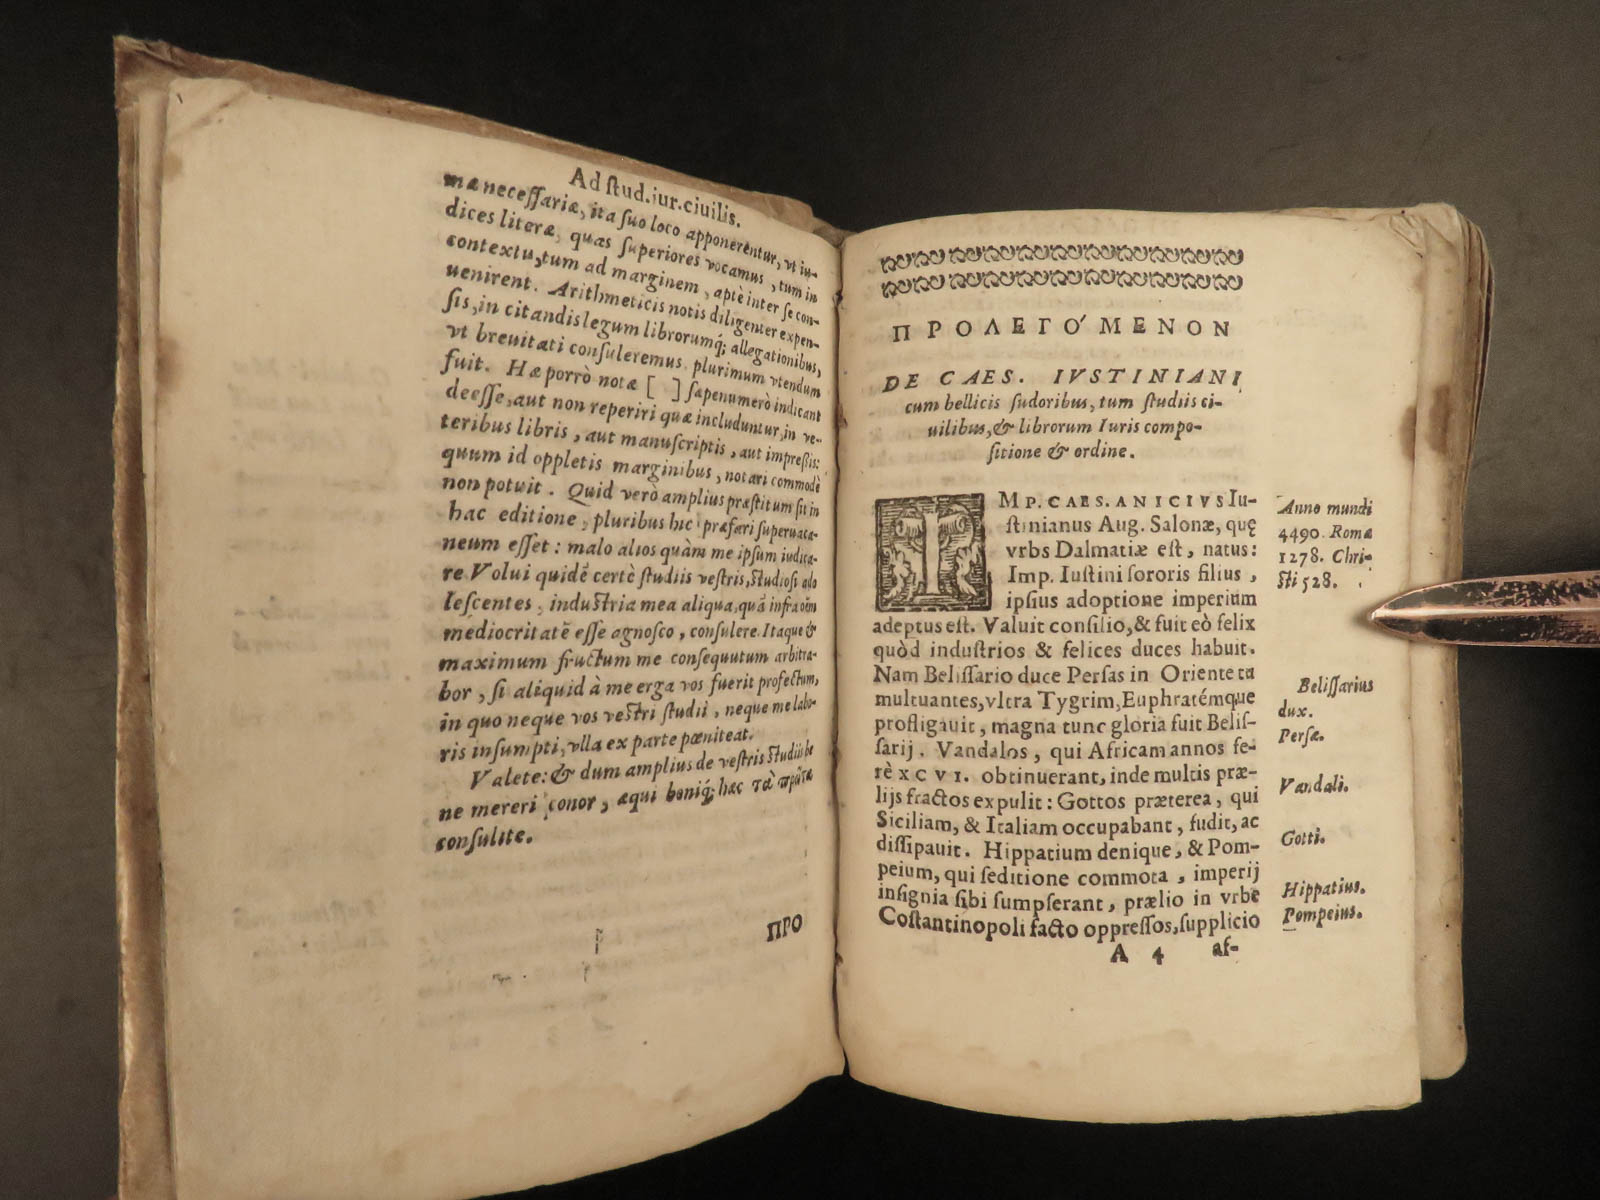 Ad ſtud. iur. ciuilis.
mæ neceſſariæ, ita ſuo loco apponerentur, vt iu-
dices literæ, quas ſuperiores vocamus, tum in
contextu, tum ad marginem, aptè inter ſe con-
uenirent. Arithmeticis notis diligenter expen-
ſis, in citandis legum librorumq; allegationibus,
vt breuitati conſuleremus plurimum vtendum
fuit. Hæ porrò notæ [ ] ſæpenumerò indicant
deeſſe, aut non reperiri quæ includuntur, in ve-
teribus libris, aut manuſcriptis, aut impreſſis:
quum id oppletis marginibus, notari commodè
non potuit. Quid verò amplius præſtitum ſit in
hac editione, pluribus hic præfari ſuperuaca-
neum eſſet: malo alios quàm me ipſum iudica-
re. Volui quidẽ certè ſtudiis veſtris, ſtudioſi ado
leſcentes, induſtria mea aliqua, quã infra oẽm
mediocritatẽ eſſe agnoſco, conſulere. Itaque &
maximum fructum me conſequutum arbitra-
bor, ſi aliquid à me erga vos fuerit profectum,
in quo neque vos veſtri ſtudii, neque me labo-
ris inſumpti, vlla ex parte pœniteat.
Valete: & dum amplius de veſtris ſtudiis be
ne mereri conor, æqui boniq; hæc τὰ πρῶτα
conſulite.
ΠΡΟ
ΠΡΟΛΕΓΟ´ΜΕΝΟΝ
DE CAES. IVSTINIANI
cum bellicis ſudoribus, tum ſtudiis ci-
uilibus, & librorum Iuris compo-
ſitione & ordine.
IMP. CAES. ANICIVS Iu-
ſtinianus Aug. Salonæ, quę
vrbs Dalmatiæ eſt, natus:
Imp. Iuſtini ſororis filius,
ipſius adoptione imperium
adeptus eſt. Valuit conſilio, & fuit eò felix
quòd induſtrios & felices duces habuit.
Nam Beliſſario duce Perſas in Oriente tu
multuantes, vltra Tygrim, Euphratémque
profligauit, magna tunc gloria fuit Beliſ-
ſarij. Vandalos, qui Africam annos fe-
rè XCVI. obtinuerant, inde multis præ-
lijs fractos expulit: Gottos præterea, qui
Siciliam, & Italiam occupabant, fudit, ac
diſſipauit. Hippatium denique, & Pom-
peium, qui ſeditione commota, imperij
inſignia ſibi ſumpſerant, prælio in vrbe
Coſtantinopoli facto oppreſſos, ſupplicio
A 4 af-
Anno mundi
4490. Romæ
1278. Chri-
ſti 528.
Beliſſarius
dux.
Perſæ.
Vandali.
Gotti.
Hippatius.
Pompeius.